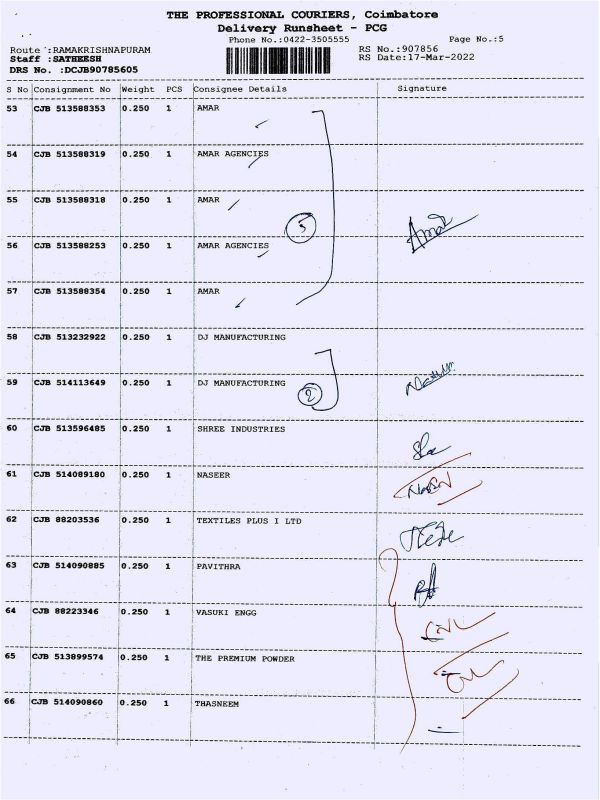 THE PROFESSIONAL COURIERS, Coimbatore
Delivery Runsheet - PCG
Phone No.:0422-3505555 Page No.:5
Route :RAMAKRISHNAPURAM RS No.:907856
Staff :SATHEESH RS Date:17-Mar-2022
DRS No. :DCJB90785605
S No Consignment No Weight PCS Consignee Details Signature
53 CJB 513588353 0.250 1 AMAR
54 CJB 513588319 0.250 1 AMAR AGENCIES
55 CJB 513588318 0.250 1 AMAR
5 Amar
56 CJB 513588253 0.250 1 AMAR AGENCIES
57 CJB 513588354 0.250 1 AMAR
58 CJB 513232922 0.250 1 DJ MANUFACTURING
59 CJB 514113649 0.250 1 DJ MANUFACTURING
2
60 CJB 513596485 0.250 1 SHREE INDUSTRIES
61 CJB 514089180 0.250 1 NASEER
62 CJB 88203536 0.250 1 TEXTILES PLUS I LTD
63 CJB 514090885 0.250 1 PAVITHRA
64 CJB 88223346 0.250 1 VASUKI ENGG
65 CJB 513899574 0.250 1 THE PREMIUM POWDER
66 CJB 514090860 0.250 1 THASNEEM